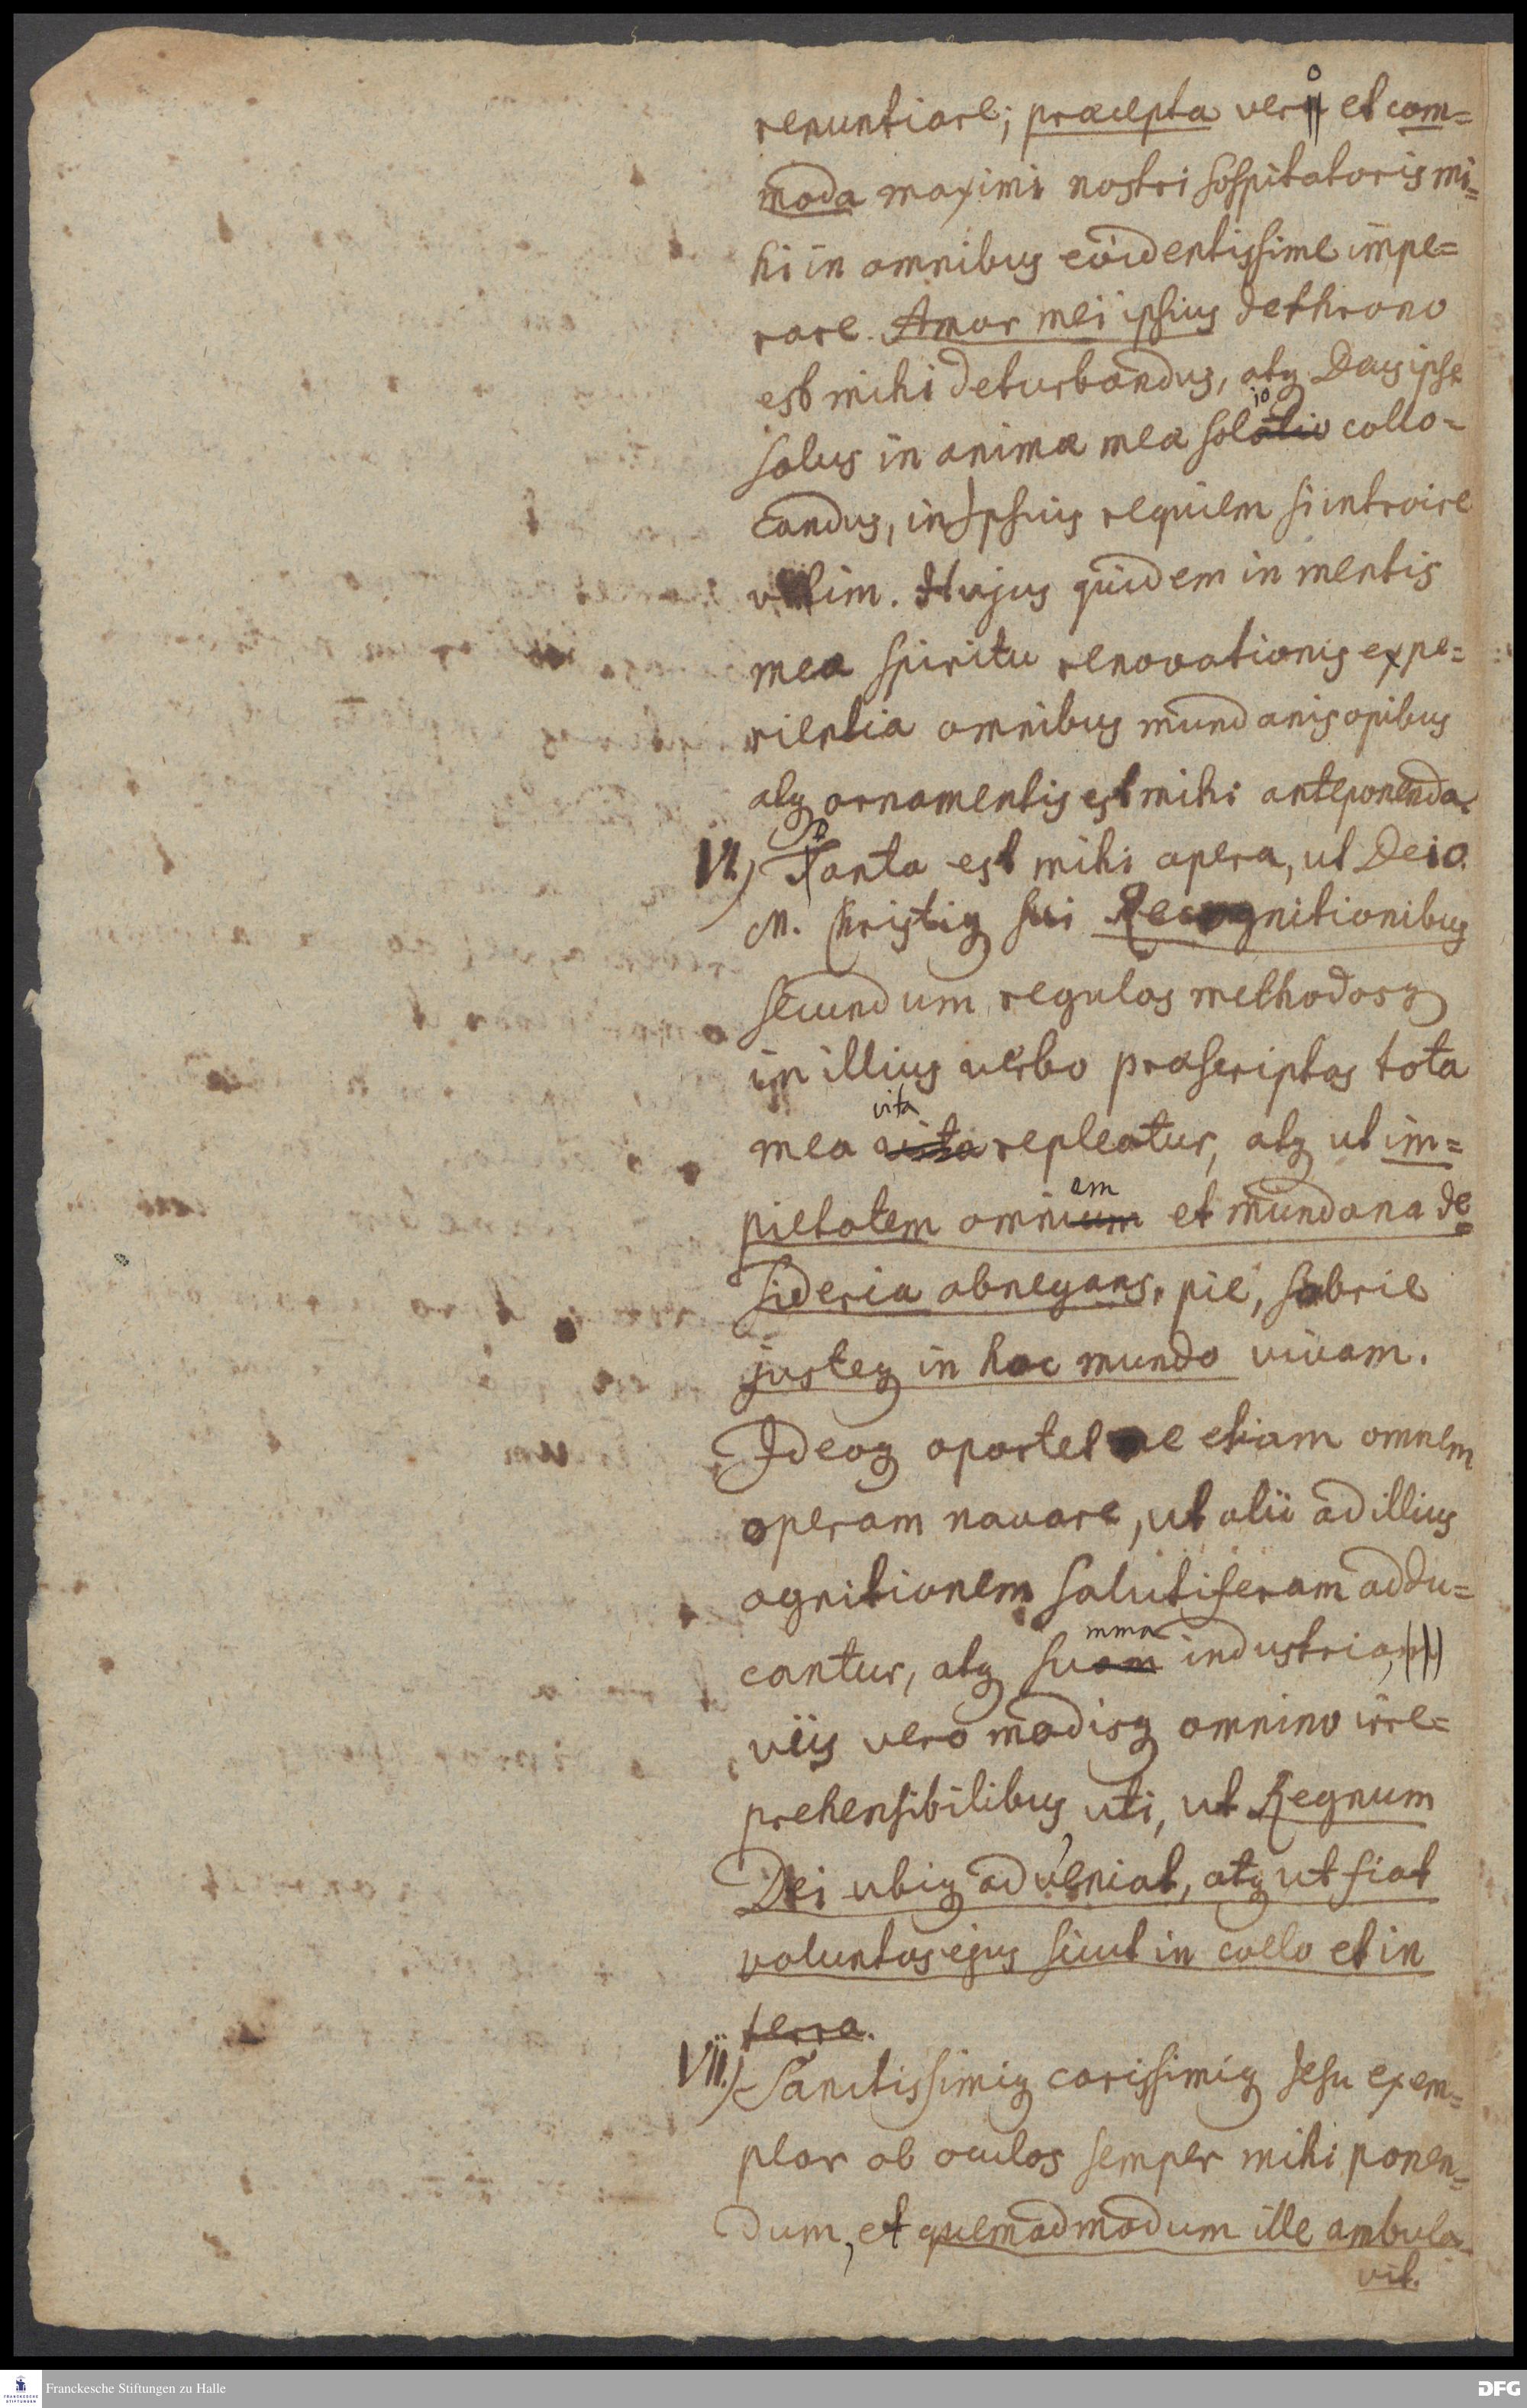 renuntiare; præcepta vero et com=
moda maximi nostri Sospitatoris mi=
hi in omnibus evidentissime impe=
rare. Amor mei ipsius de throno
est mihi deturbandus, atq Deus ipse
solus in animæ meæ solio collo=
candus, in Ipsius requiem si introire
velim. Hujus quidem in mentis
meæ spiritu renovationis expe=
rientia omnibus mundanis opibus
atq ornamentis est mihi anteponenda.
VI.) Danta est mihi opera, ut Dei O.
M. Christiq sui Recognitionibus
secundum regulas methodosq
in illius verbo præscriptas tota
mea vita repleatur, atq ut im=
pietatem omnem et mundana de=
sideria abnegans, pie, sobrie
justeq in hoc mundo vivam.
Ideoq oportet me etiam omnem
operam navare, ut alii ad illius
agnitionem salutiferam addu=
cantur, atq summa industria,
viis vero modisq omnino irre=
prehensibilibus uti, ut Regnum
Dei ubiq adveniat, atq ut fiat
voluntas ejus sicut in coelo et in
terra.
VII.) Sanctissimiq carissimiq Jesu exem=
plar ob oculos semper mihi ponen=
dum, et quemadmodum ille ambula-
vit.
Franckesche Stiftungen zu Halle
DFG